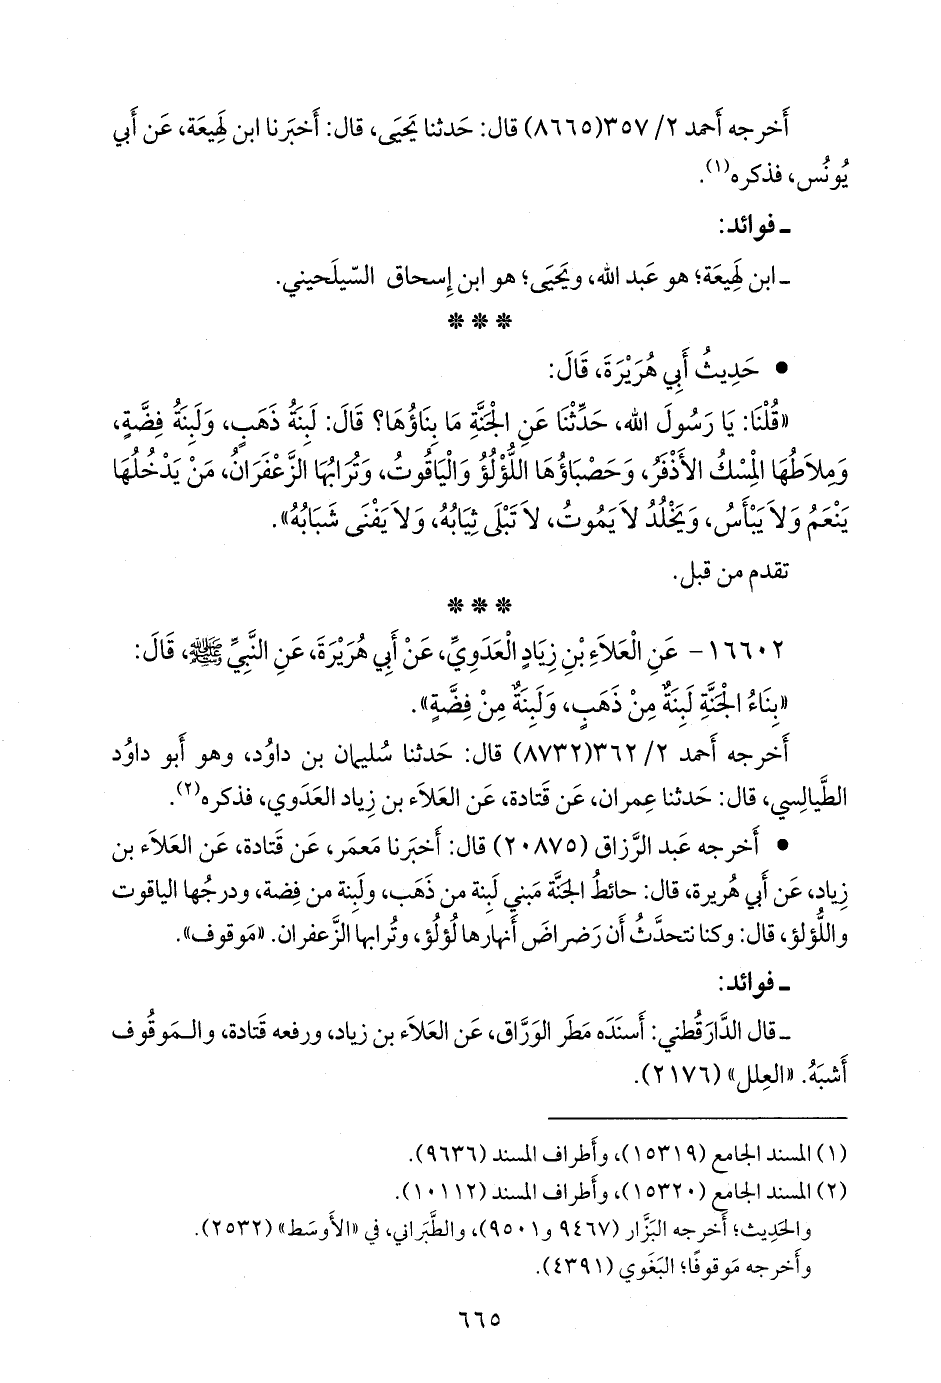 أَخرجه أَحمد ٢/ ٣٥٧(٨٦٦٥) قال: حَدثنا يَحيَى، قال: أَخبَرنا ابن لَهِيعَة، عَن أَبي
يُونُس، فذكره(١).
ـ فوائد:
ـ ابن لَهِيعَة؛ هو عَبد الله، ويَحيَى؛ هو ابن إِسحاق السّيلَحيني.
* * *
• حَدِيثُ أَبِي هُرَيْرَةَ، قَالَ:
«قُلْنَا: يَا رَسُولَ الله، حَدِّثْنَا عَنِ الْجَنَّةِ مَا بِنَاؤُهَا؟ قَالَ: لَبِنَةُ ذَهَبٍ، وَلَبِنَةُ فِضَّةٍ،
وَمِلاَطُهَا الْمِسْكُ الأَذْفَرُ، وَحَصْبَاؤُهَا اللُّؤْلُؤُ وَالْيَاقُوتُ، وَتُرَابُهَا الزَّعْفَرَانُ، مَنْ يَدْخُلُهَا
يَنْعَمُ وَلاَ يَبْأَسُ، وَيَخْلُدُ لاَ يَمُوتُ، لاَ تَبْلَى ثِيَابُهُ، وَلاَ يَفْنَى شَبَابُهُ».
تقدم من قبل.
* * *
١٦٦٠٢ - عَنِ الْعَلاَءِ بْنِ زِيَادٍ الْعَدَوِيِّ، عَنْ أَبِي هُرَيْرَةَ، عَنِ النَّبِيِّ ﷺ، قَالَ:
«بِنَاءُ الْجَنَّةِ لَبِنَةٌ مِنْ ذَهَبٍ، وَلَبِنَةٌ مِنْ فِضَّةٍ».
أَخرجه أَحمد ٢/ ٣٦٢(٨٧٣٢) قال: حَدثنا سُليمان بن داوُد، وهو أَبو داوُد
الطَّيالِسي، قال: حَدثنا عِمران، عَن قَتادة، عَن العَلاَء بن زِياد العَدَوي، فذكره(٢).
• أَخرجه عَبد الرَّزاق (٢٠٨٧٥) قال: أَخبَرنا مَعمَر، عَن قَتادة، عَن العَلاَء بن
زِياد، عَن أَبي هُريرة، قال: حائطُ الجَنَّة مَبني لَبِنة من ذَهَب، ولَبِنة من فِضة، ودرجُها الياقوت
واللُّؤلؤ، قال: وكنا نتحدَّثُ أَن رَضراضَ أَنهارها لُؤلُؤ، وتُرابها الزَّعفران. «مَوقوف».
ـ فوائد:
ـ قال الدَّارَقُطني: أَسنَدَه مَطَر الوَرَّاق، عَن العَلاَء بن زياد، ورفعه قَتادة، والـمَوقُوف
أَشبَهُ. «العِلل» (٢١٧٦).
(١) المسند الجامع (١٥٣١٩)، وأَطراف المسند (٩٦٣٦).
(٢) المسند الجامع (١٥٣٢٠)، وأَطراف المسند (١٠١١٢).
والحَدِيث؛ أَخرجه البَزَّار (٩٤٦٧ و٩٥٠١)، والطَّبَراني، في «الأَوسَط» (٢٥٣٢).
وأَخرجه مَوقوفًا؛ البَغَوي (٤٣٩١).
٦٦٥